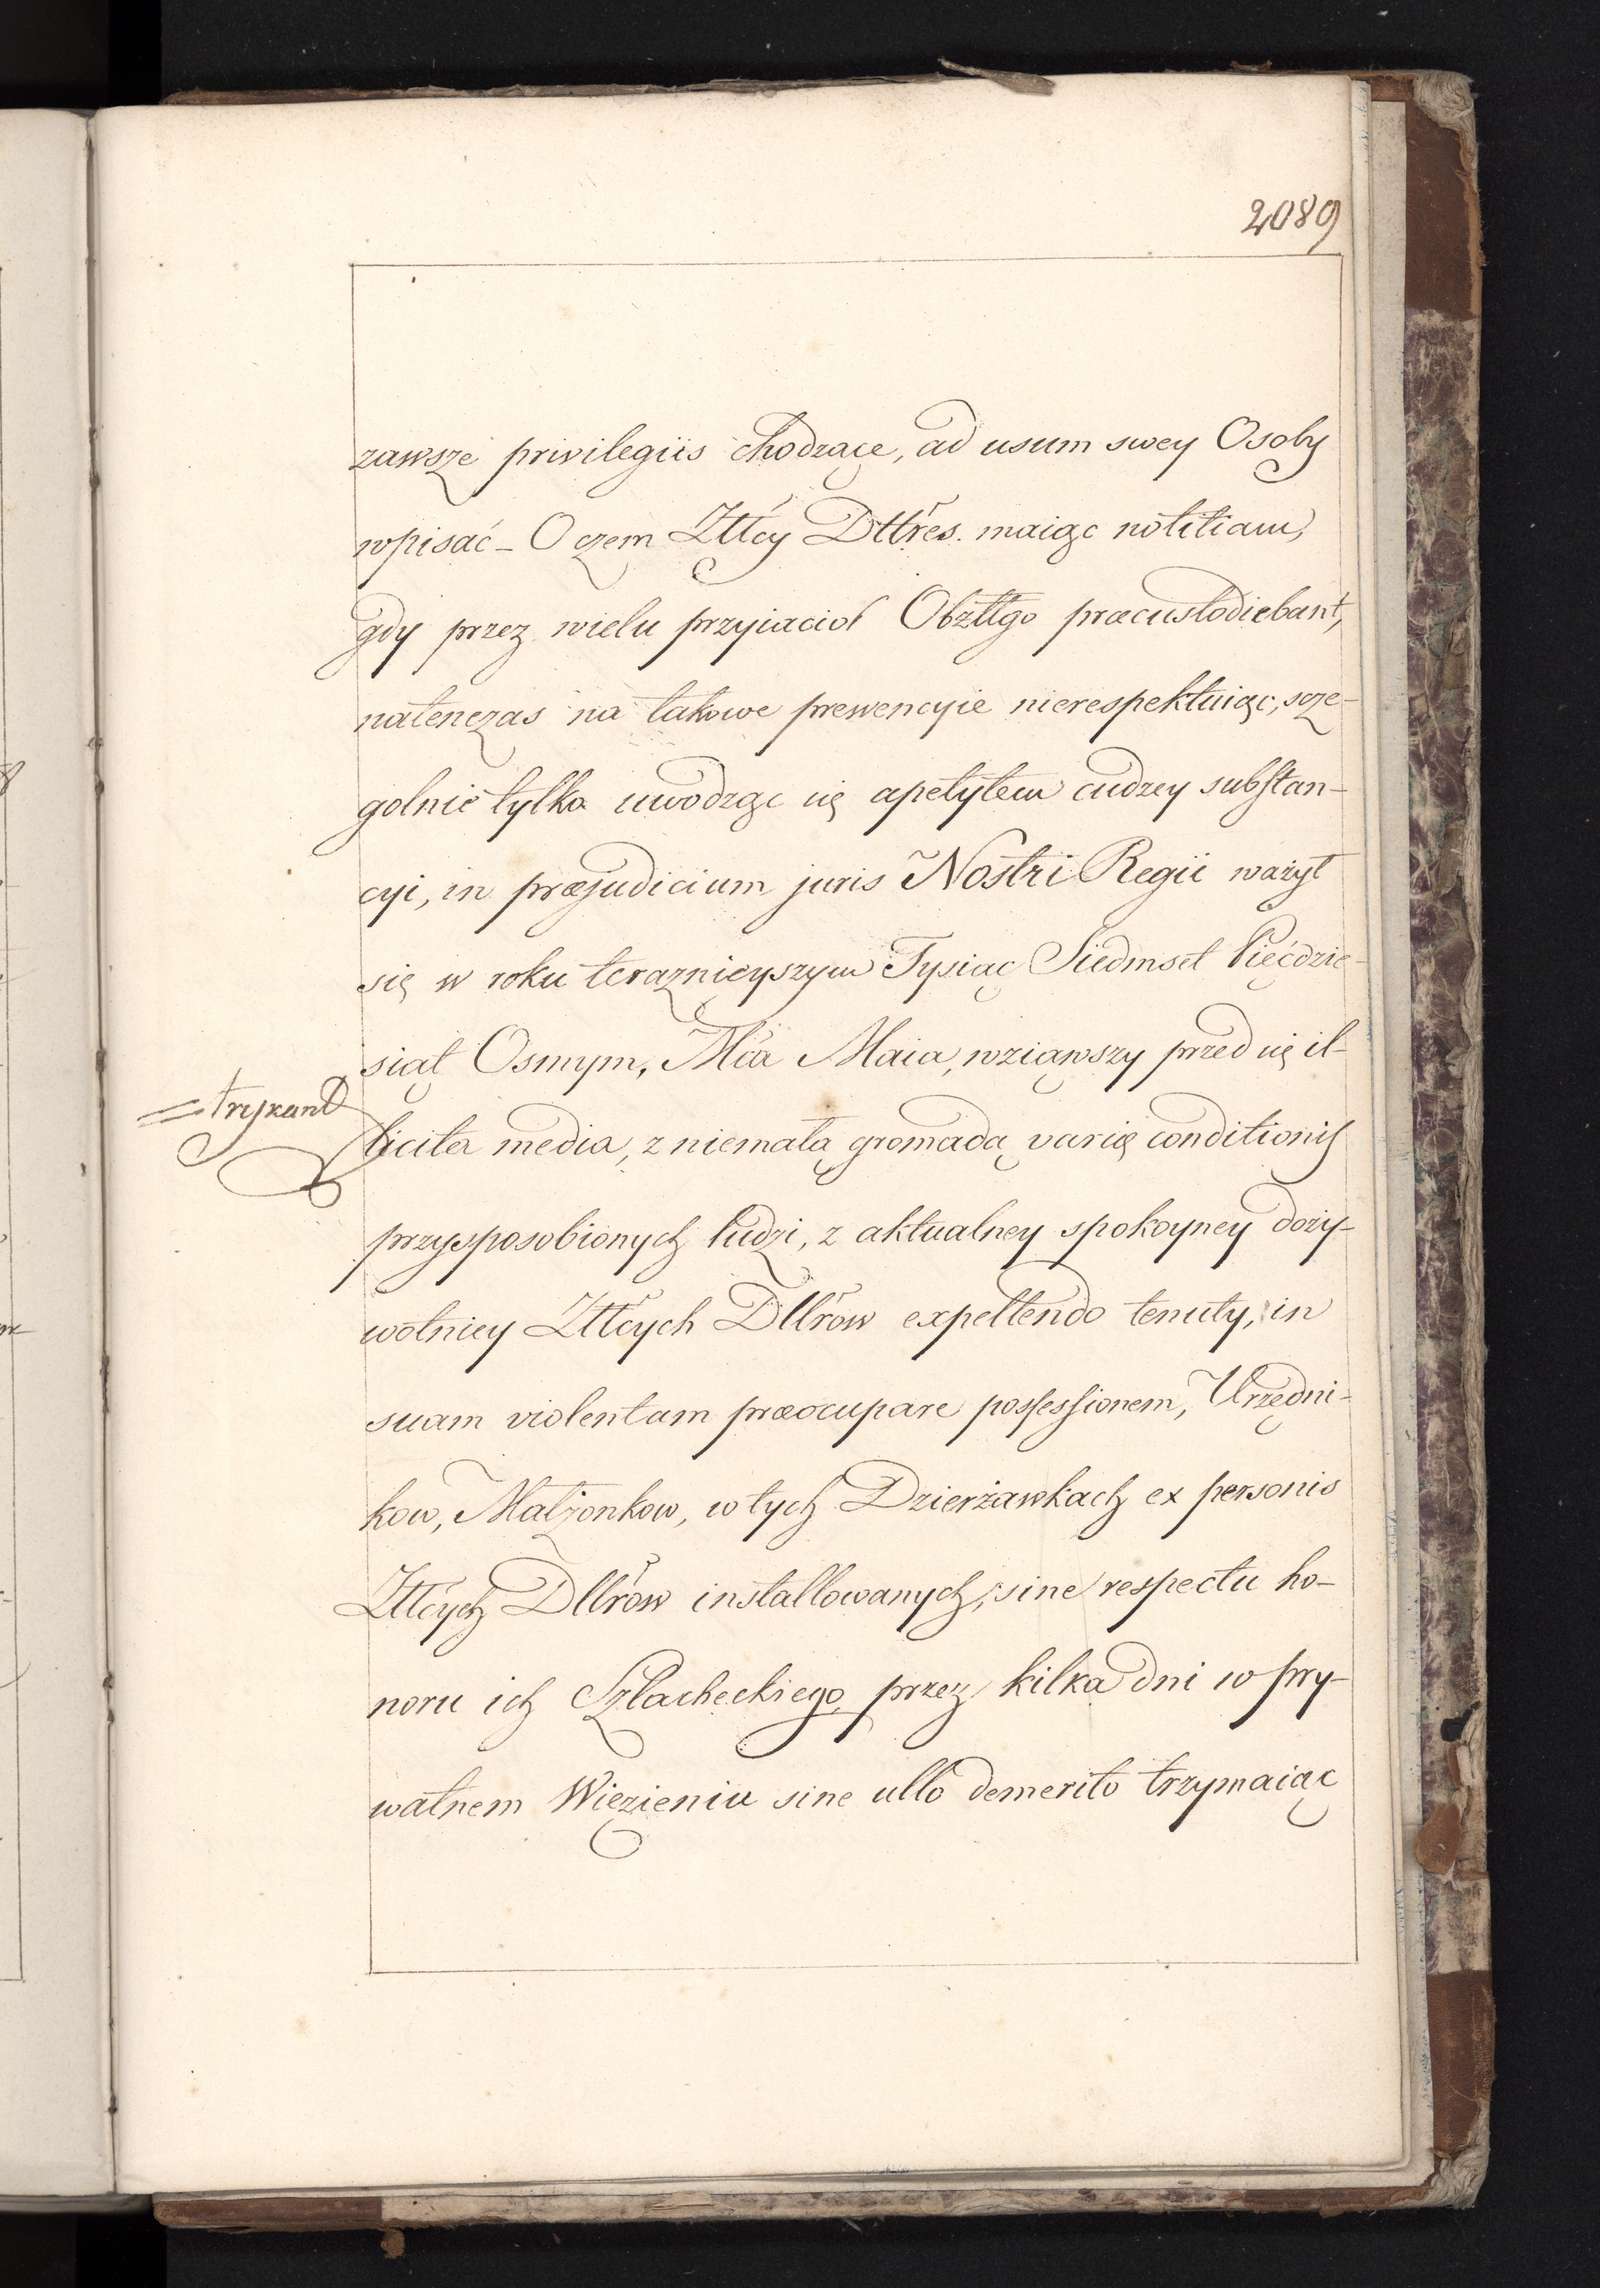 2089
zawsze privilegiis chodzące, ad usum swey Osoby
wpisać – O czem Żłłcy Dttres. maiąc notitiam,
gdy przez wielu przyiacioł Obżłłgo præcustodiebant,
natenczas na takowe prewencyie nierespektuiąc, scze-
golnie tylko uwodząc się apetytem cudzey substan-
cyi, in præjudicium juris Nostri Regii ważył
się w roku teraznieyszym Tysiąc Siedmset Pięćdzie-
siąt Osmym, Mca Maia, wziąwszy przed się il-
licita media, z niemałą gromadą varię conditionis
przysposobionych ludzi, z aktualney spokoyney doży-
wotniey Żłłcych Dllrow expellendo tenuty, in
suam violentam præocupare possessionem, Urzędni-
kow, Małżonkow, w tych Dzierżawkach ex personis
Żłłcych Dllrow installowanych, sine respectu ho-
noru ich Szlacheckiego, przez kilka dni w pry-
watnem Więzieniu sine ullo demerito trzymaiąc